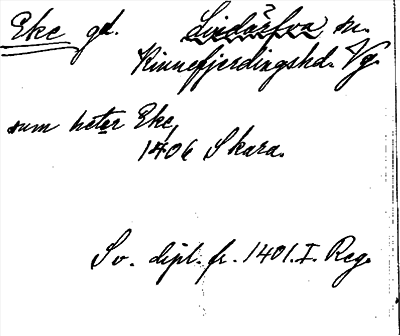 Eke gd. Lindärfva, sn.
Kinnefjerdingshd. Vg.
sum heter Eke,
1406 Skara.
Sv. dipl. fr. 1401. I. Reg.